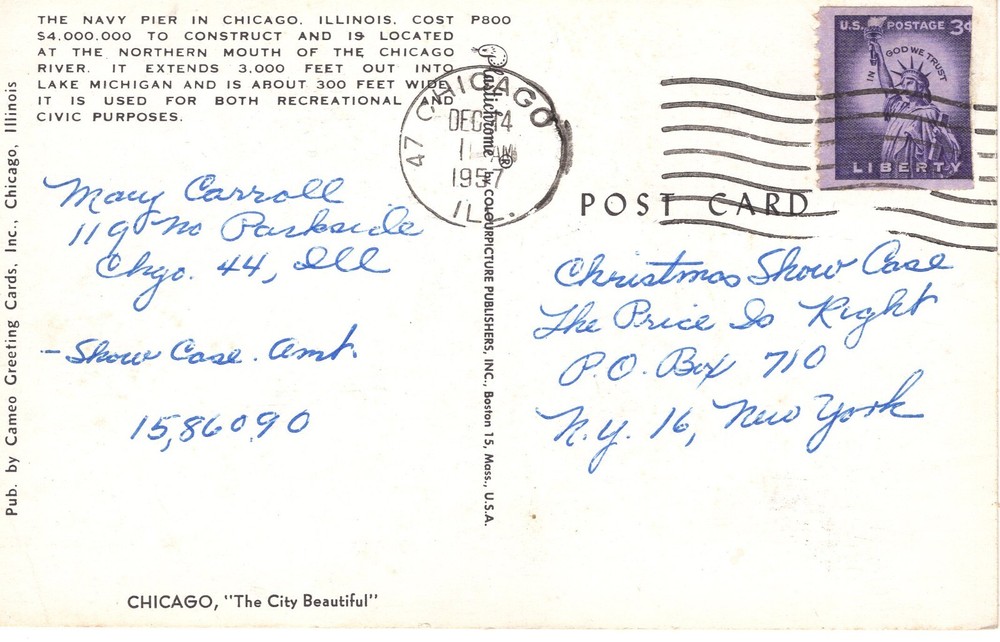 THE NAVY PIER IN CHICAGO, ILLINOIS, COST P800
$4,000,000 TO CONSTRUCT AND IS LOCATED
AT THE NORTHERN MOUTH OF THE CHICAGO
RIVER. IT EXTENDS 3,000 FEET OUT INTO
LAKE MICHIGAN AND IS ABOUT 300 FEET WIDE.
IT IS USED FOR BOTH RECREATIONAL AND
CIVIC PURPOSES.
Pub. by Cameo Greeting Cards, Inc., Chicago, Illinois
Mary Carroll
119 No Parkside
Chgo. 44, Ill
- Show Case. Amt.
15,860.90
CHICAGO, "The City Beautiful"
Plastichrome ® by COLOURPICTURE PUBLISHERS, INC., Boston 15, Mass., U.S.A.
47 CHICAGO
DEC 14
AM
1957
ILL.
U.S. POSTAGE 3¢
IN GOD WE TRUST
LIBERTY
POST CARD
Christmas Show Case
The Price Is Right
P.O. Box 710
N.Y. 16, New York